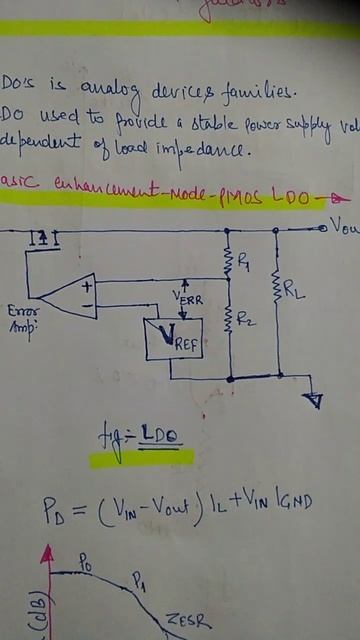 DO's is analog devices families.
DO used to provide a stable power supply vol
dependent of load impedance.
asic enhancement-Mode-PMOS LDO
Vou
R1
+
VERR
RL
Error
Amp:
-
R2
VREF
fig:- LDO
PD = (VIN - Vout) IL + VIN IGND
P0
P1
ZESR
(dB)